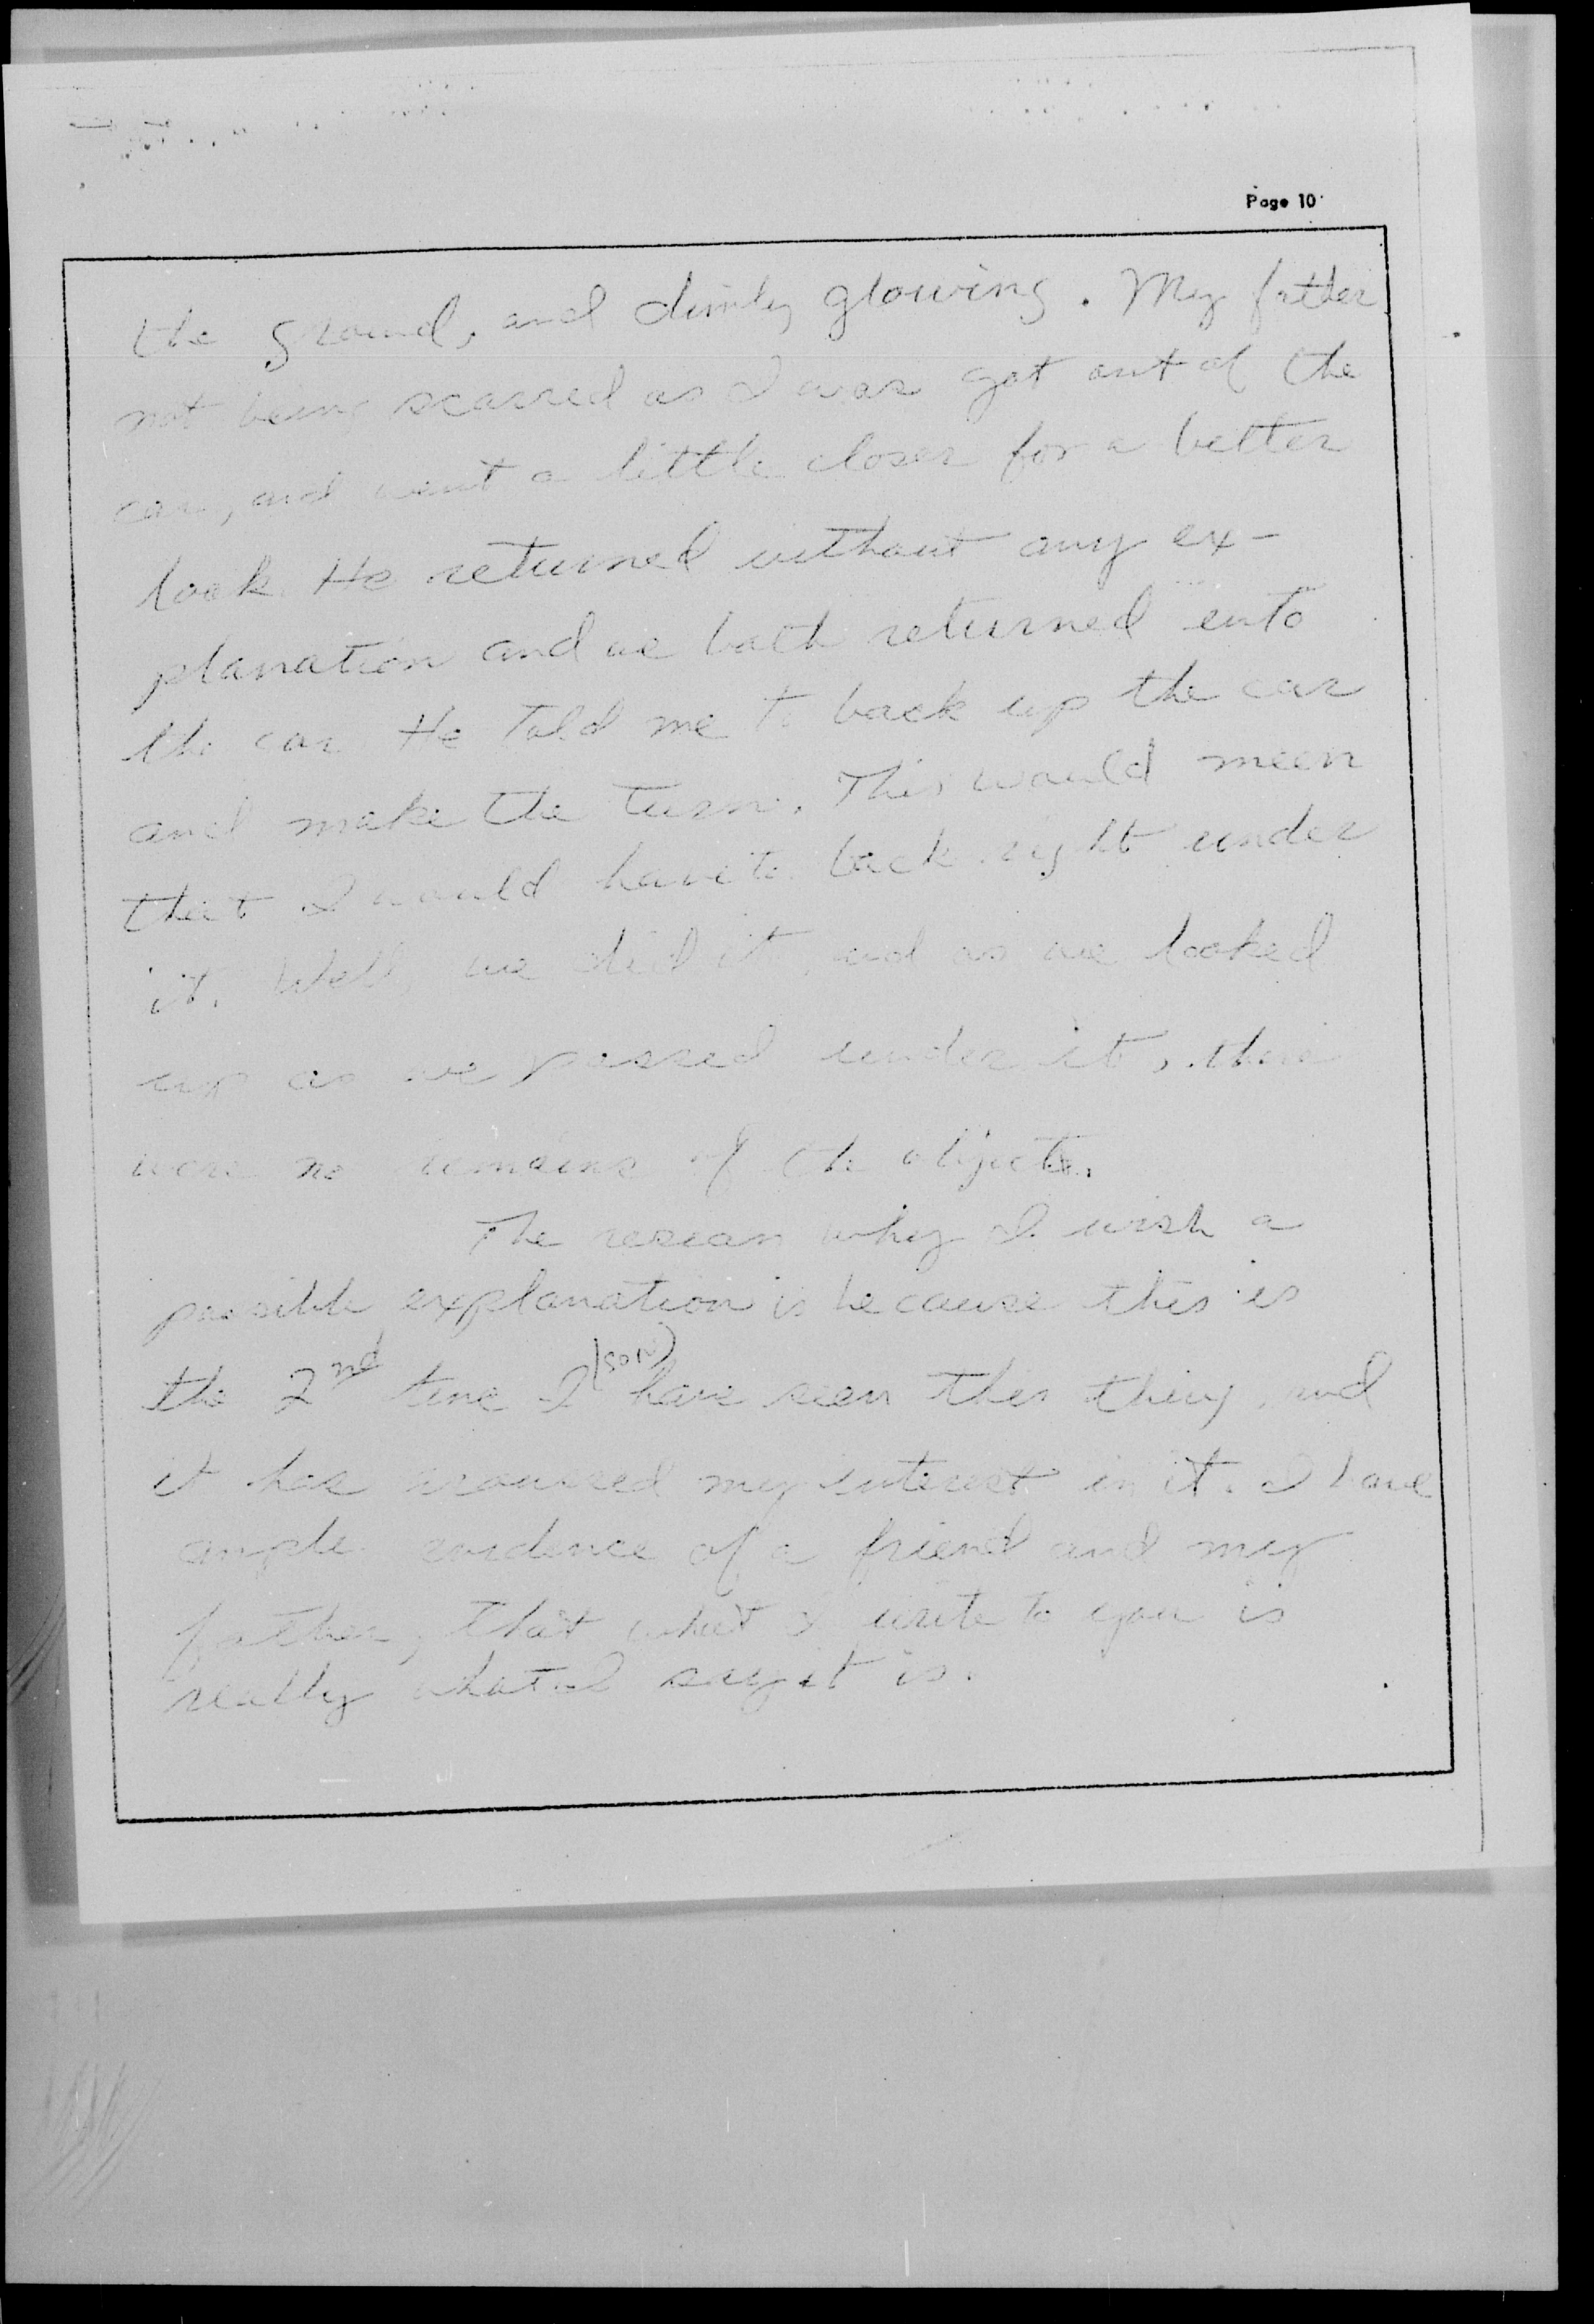 Page 10
the ground, and dimly glowing. My father
not being scarred as I was got out of the
car, and went a little closer for a better
look. He returned without any ex-
planation and we both returned into
the car. He told me to back up the car
and make the turn. This would meen
that I would have to back right under
it. Well, we did it, and as we looked
up as we passed under it, there
were no remains of the object.
The reason why I wish a
possible explanation is because this is
the 2nd time I (son) have seen this thing, and
it has aroused my interest in it. I have
ample evidence of a friend and my
father, that what I write to you is
really what I say it is.